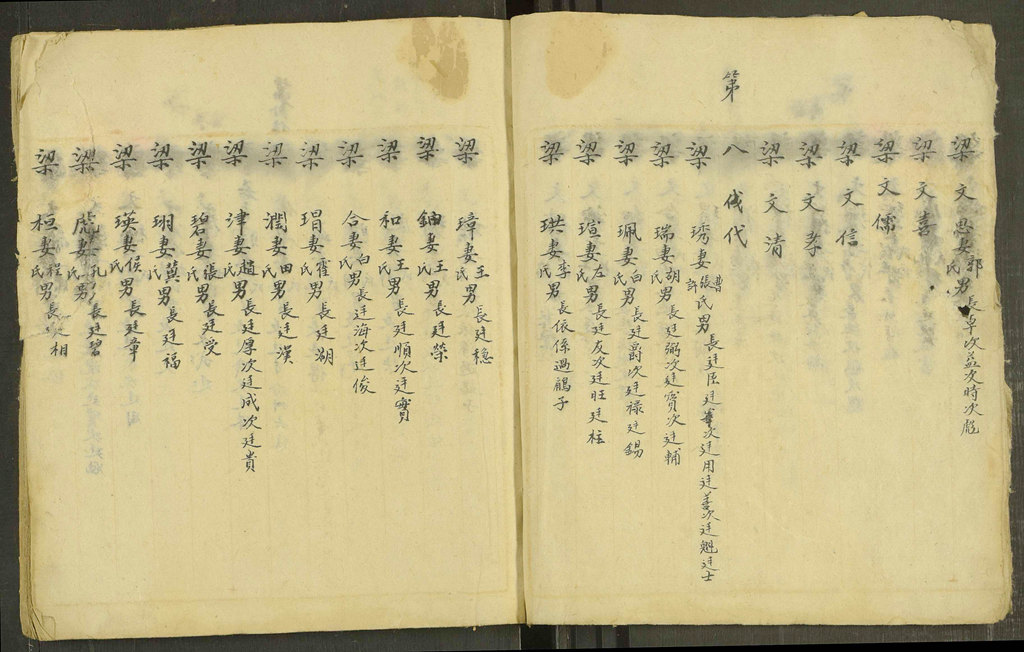 梁文思妻郭氏男長卓次益次時次彪
梁文喜
梁文儒
梁文信
梁文孝
梁文清
第八代
梁琇妻曹張許氏男長廷臣廷次廷用廷善次廷魁廷士
梁瑞妻胡氏男長廷弼次廷賓次廷輔
梁珮妻白氏男長廷爵次廷祿廷錫
梁瑄妻左氏男長廷友次廷旺廷柱
梁珙妻李氏男長依係過鵬子
梁璋妻王氏男長廷穩
梁鈿妻王氏男長廷榮
梁和妻王氏男長廷順次廷賓
梁合妻白氏男長廷海次廷俊
梁珺妻霍氏男長廷湖
梁潤妻田氏男長廷漢
梁津妻趙氏男長廷厚次廷成次廷貴
梁碧妻張氏男長廷受
梁珝妻黃氏男長廷福
梁瑛妻侯氏男長廷章
梁虎妻孔氏男長廷碧
梁桓妻程氏男長相